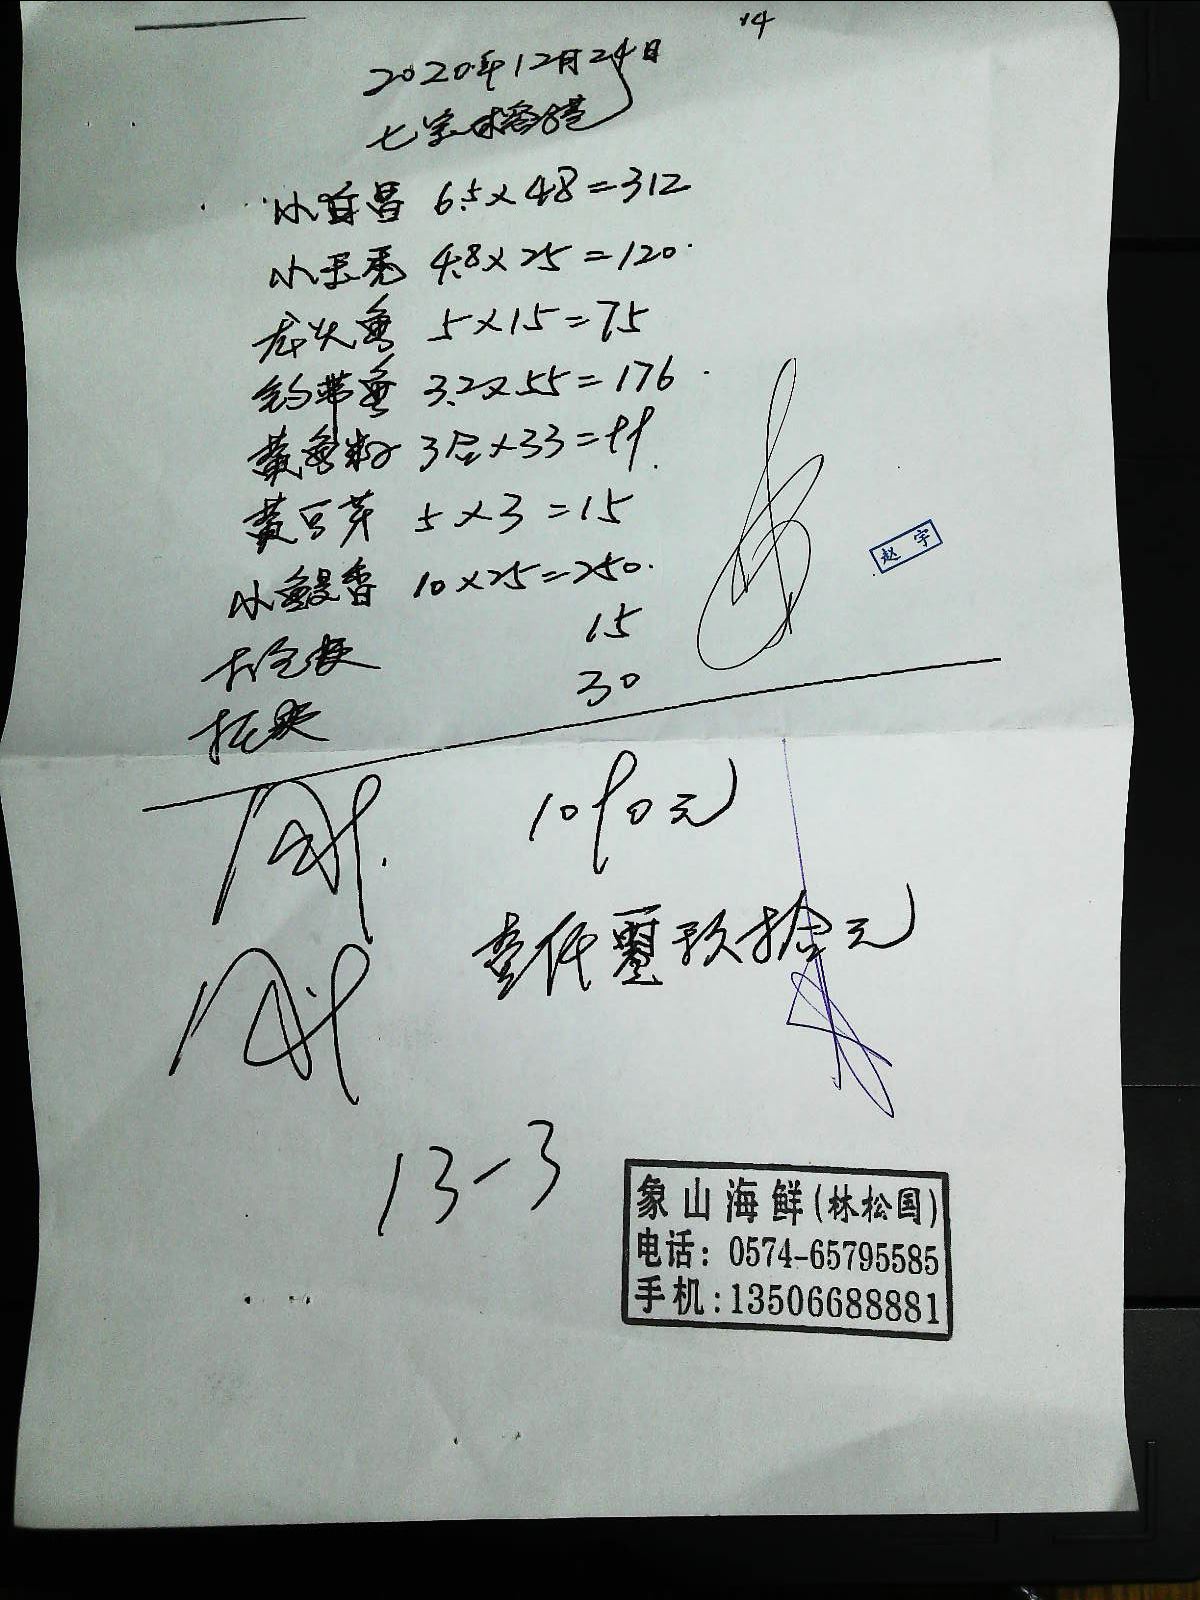 14
2020年12月24日
七宝
小白昌 6.5×48=312
小 4.8×25=120
龙头鱼 5×15=75
钓带鱼 3.2×55=176
黄鱼籽 3盒×33=99
黄豆芽 5×3=15
小鳗香 10×25=250
15
30
1090元
壹仟零玖拾元
13-3
赵宇
象山海鲜(林松国)
电话:0574-65795585
手机:13506688881